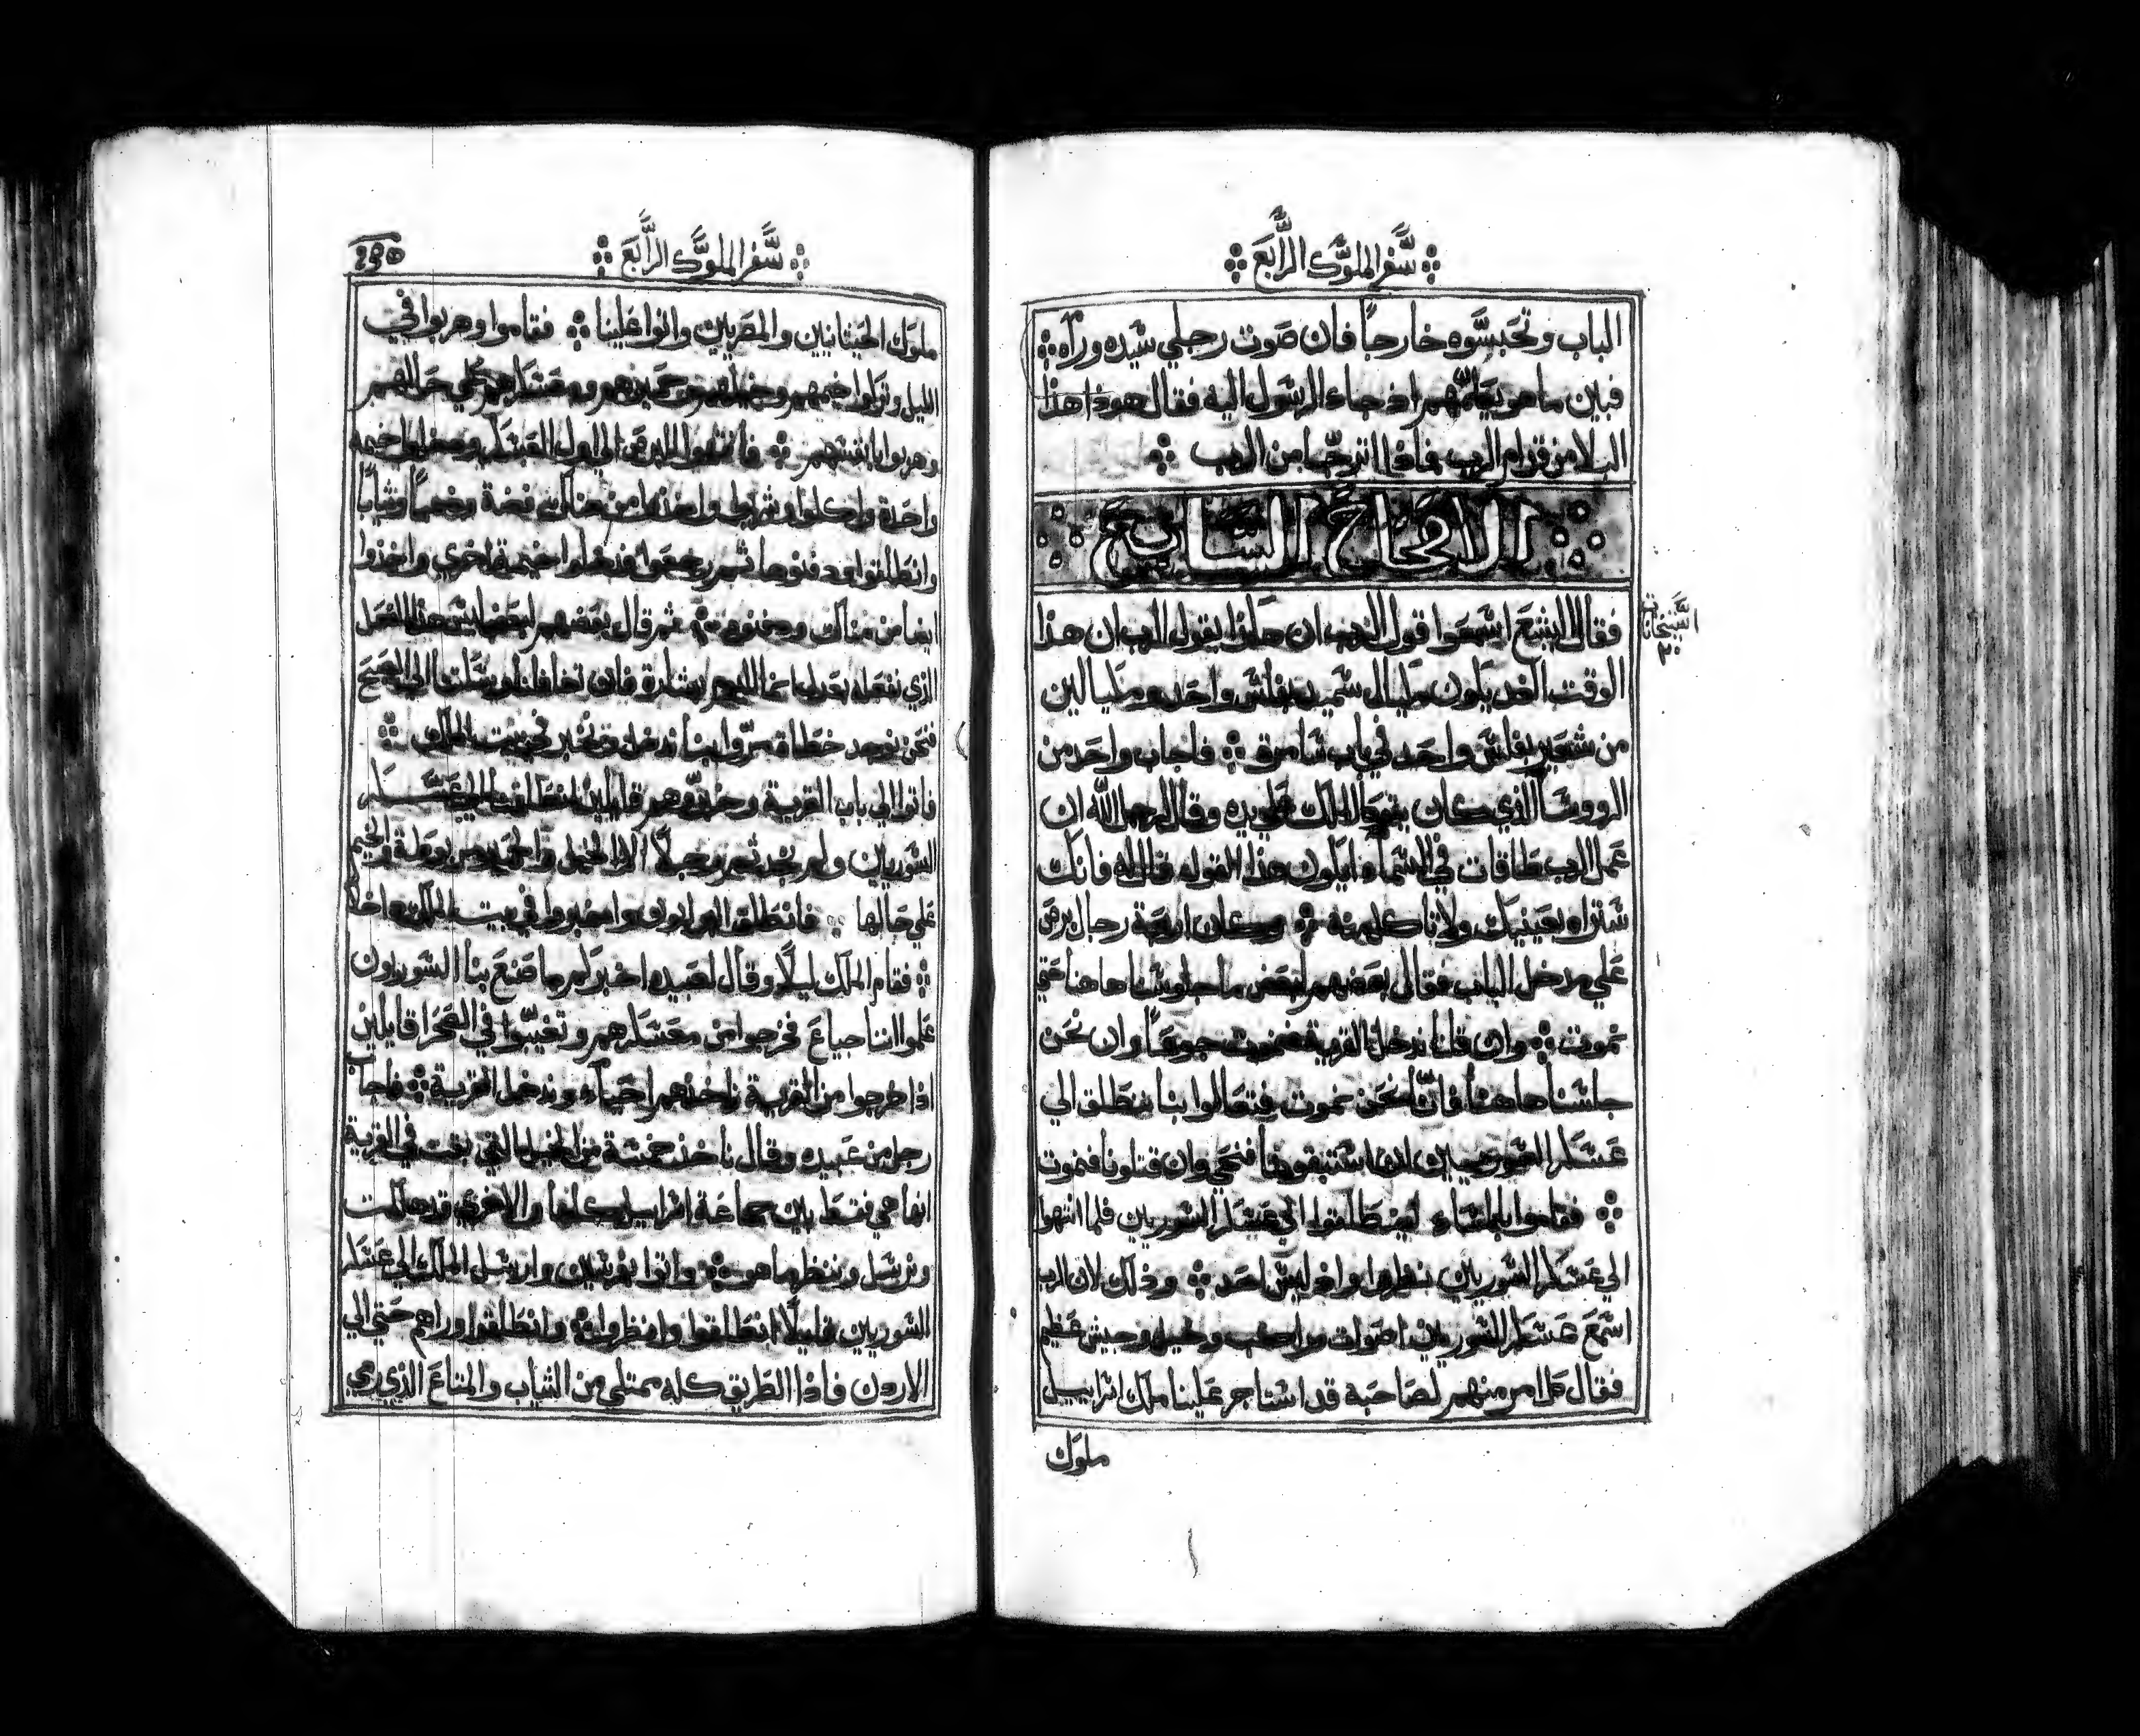 سفر الملوك الرابع
الباب وتحبسوه خارجاً فان صوت رجلي سيده وراه
فبين ما هو يكلمهم اذ جاء الرسول اليه فقال هوذا هذا
البلا من قدام الرب فماذا اترجا من الرب
الاصحاح السابع
فقال اليشع اسمعوا قول الرب ان هكذا يقول الرب ان هذا
الوقت الغد يكون مكيال سميد بفلس واحد ومكيالين
من شعير بفلس واحد في باب سامرة فاجاب واحد من
الروسا الذي كان يتكي الملك علي يده وقال لرجل الله ان
عمل الرب طاقات في السماء ايكون هذا القول قال له فانك
ستراه بعينيك ولا تاكل منه وكان اربعة رجال برص
علي مدخل الباب فقال بعضهم لبعض ما جلوسنا هاهنا حتي
نموت وان قلنا ندخل القرية فنموت جوعاً وان نحن
جلسنا هاهنا فاننا نحن نموت فتعالوا بنا ننطلق الي
عسكر السوريين ان استبقونا فنحي وان قتلونا فنموت
فقاموا بالمساء لينطلقوا الي عسكر السوريين فلما انتهوا
الي عسكر السوريين نظروا واذ ليس احد وذلك لان الرب
اسمع عسكر السوريين اصوات مراكب وخيل وجيش عظيم
فقال كل امر منهم لصاحبه قد استاجر علينا ملك اسراييل
ملوك
السنجات
٢٠
سفر الملوك الرابع
ملوك الحيثانيين والمصريين واتوا علينا فقاموا وهربوا في
الليل وتركوا خيمهم وخيلهم وحميرهم ومعسكرهم كلي حالهم
وهربوا بانفسهم فانتهوا البرص الي اول العسكر ودخلوا خيمة
واحدة واكلوا وشربوا واخذوا من هناك فضة وذهباً وثياباً
وانطلقوا ودفنوها ثم رجعوا فدخلوا خيمة اخري واخذوا
ايضا من هناك ودفنوه ثم قال بعضهم لبعض ليس هذا الفعل
الذي نفعله بعدل انما اليوم بشارة فان تغافلنا وسكتنا الي الصبح
فنحن نوجد خطاة سروا بنا ندخل ونخبر في بيت الملك
فاتوا الي باب القرية وحدثوهم قايلين انطلقنا الي عسكر
السوريين ولم نجد ثم رجلاً الا الخيل والحمير مربوطة والخيم
علي حالها فانطلق البوابون واخبروا في بيت الملك داخلاً
فقام الملك ليلاً وقال لعبيده اخبركم ما صنع بنا السوريون
علموا اننا جياع فخرجوا من معسكرهم وتغيبوا في الصحرا قايلين
اذا خرجوا من القرية ناخذهم احياء وندخل القرية فاجاب
رجل من عبيده وقال ناخذ خمسة من الخيل التي بقت في القرية
انها هي فقط بين جماعة اسراييل كلها والاخري قد هلكت
ونرسل وننظر ما هو واتوا بفرسين وارسل الملك الي عسكر
السوريين قايلاً انطلقوا وانظروا وانطلقوا وراهم حتي الي
الاردن فاذا الطريق كله ممتلي من الثياب والمتاع الذي رمي